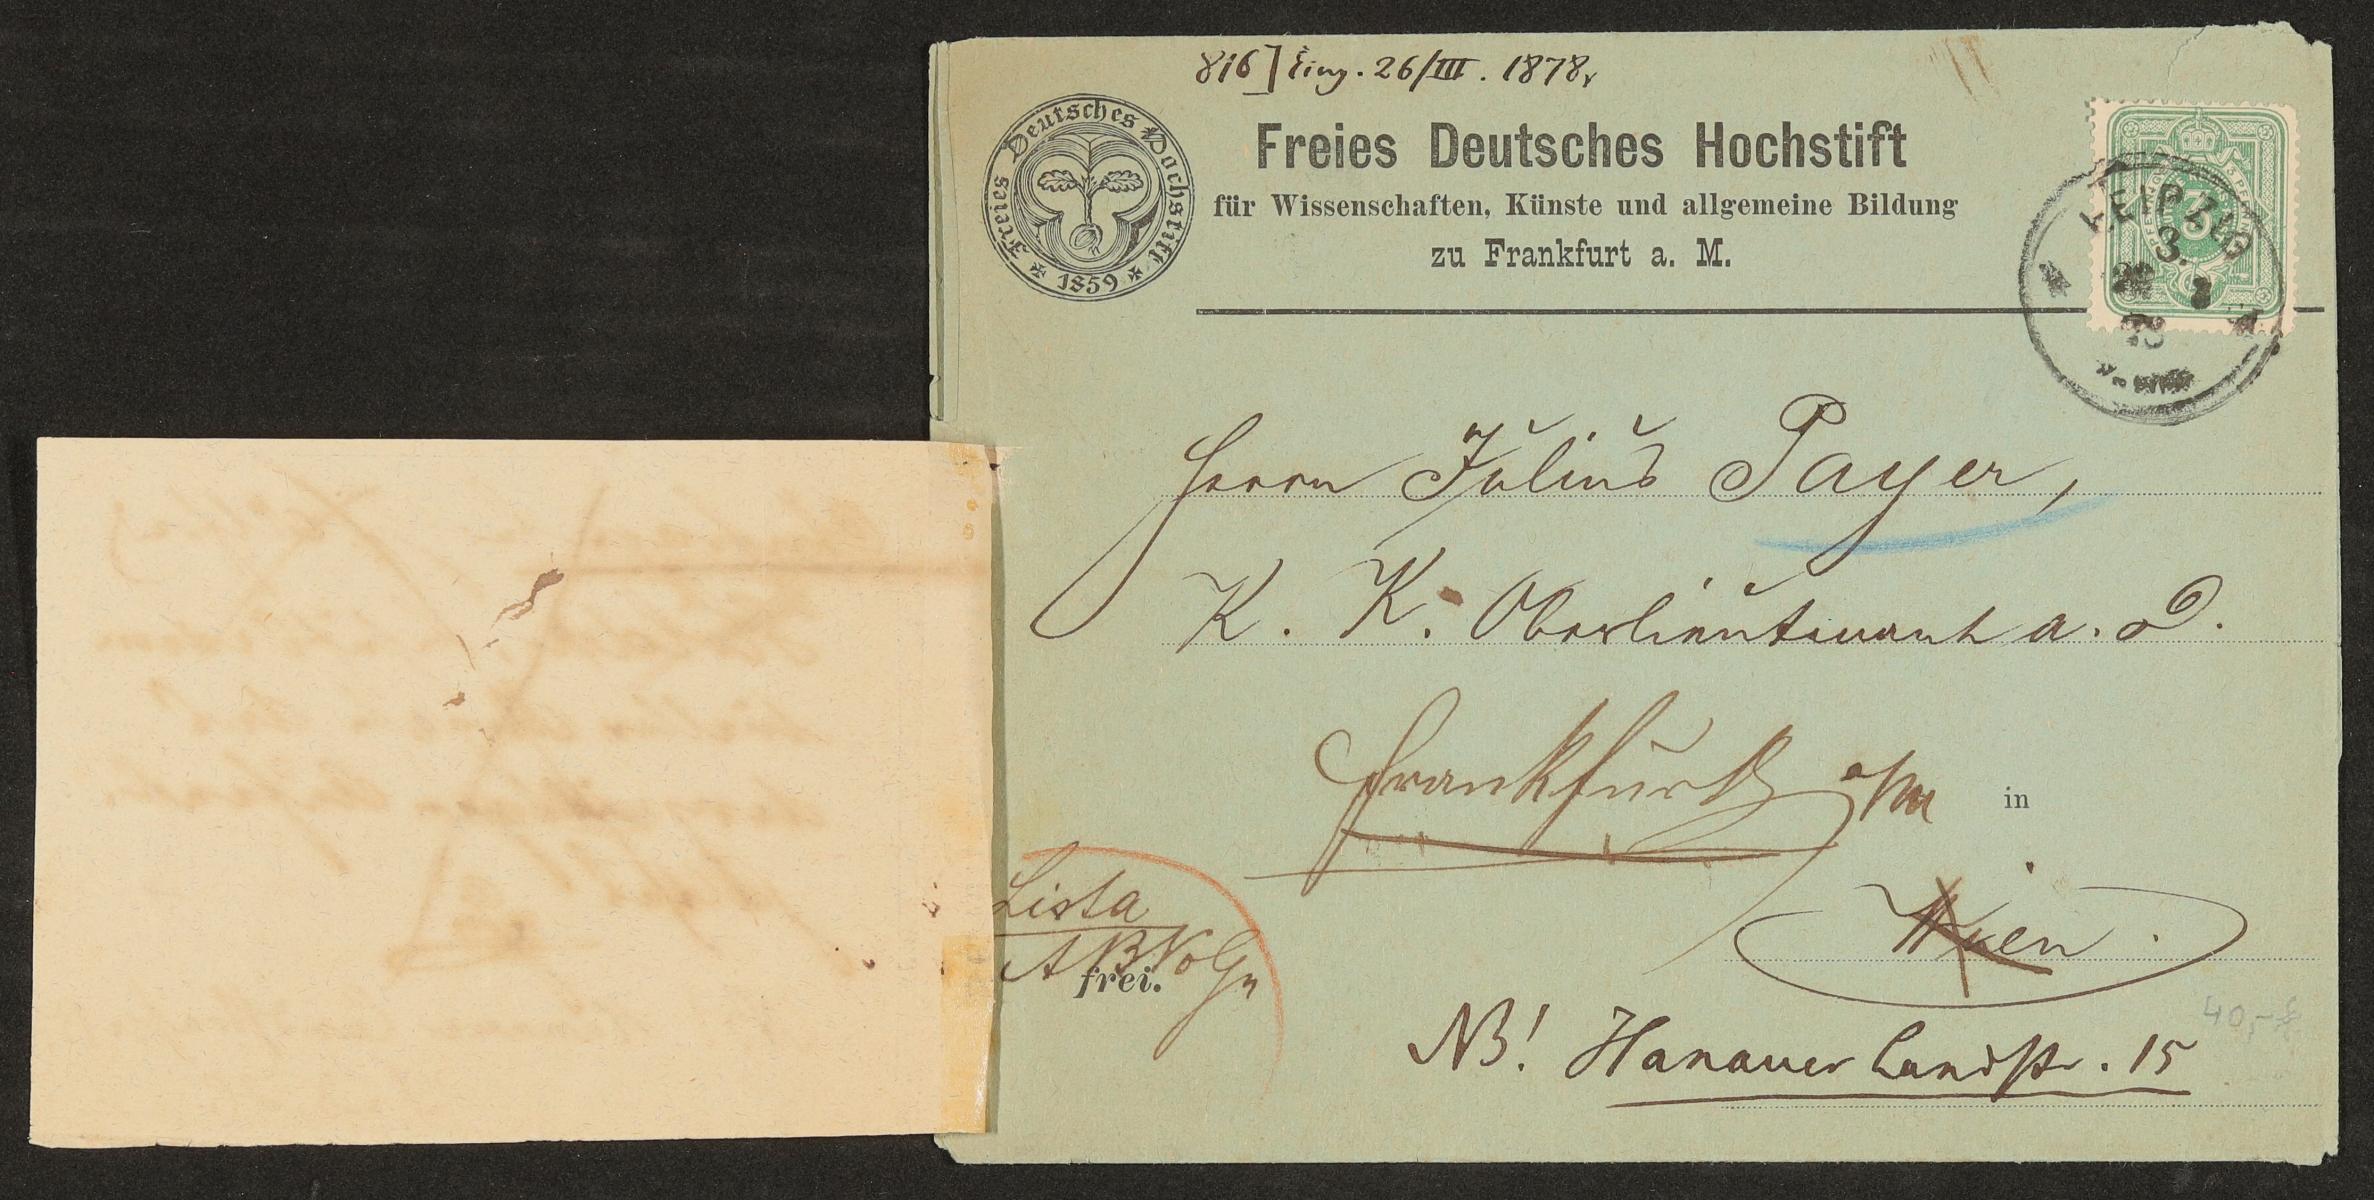 816] Eing. 26/III. 1878.
Freies Deutsches Hochstift
* 1859 *
Freies Deutsches Hochstift
für Wissenschaften, Künste und allgemeine Bildung
zu Frankfurt a. M.
3 PFENNIG
3
LEIPZIG
3.
Herrn Julius Payer,
K. K. Oberlieutenant a. D.
Frankfurt a/M
in
Wien
Lista
frei.
NB! Hanauer Landstr. 15
40,-